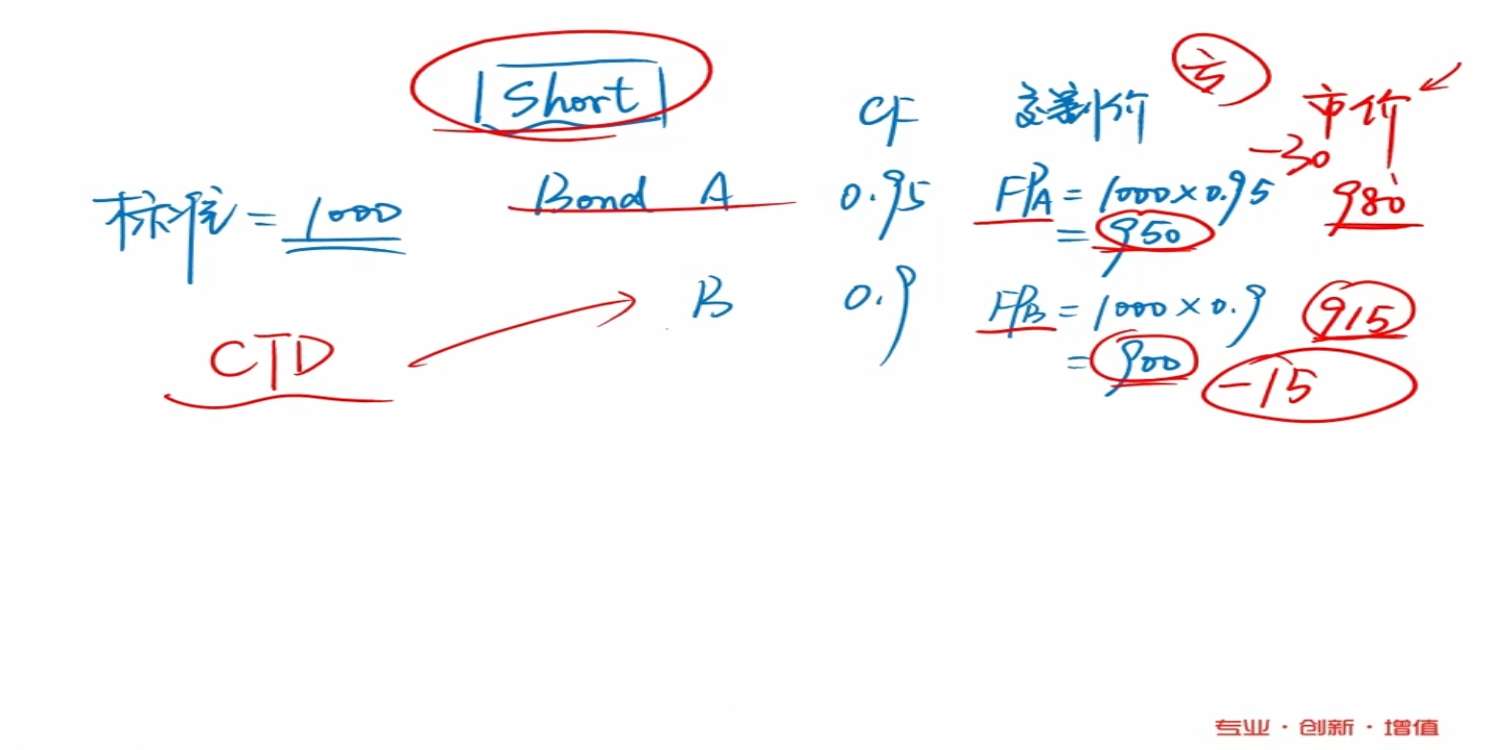 Short
CF 交割价 亏 市价
标准 = 1000
Bond A 0.95 FPA = 1000×0.95 -30 980
= 950
B 0.9 FPB = 1000×0.9 915
= 900 -15
CTD
专业·创新·增值